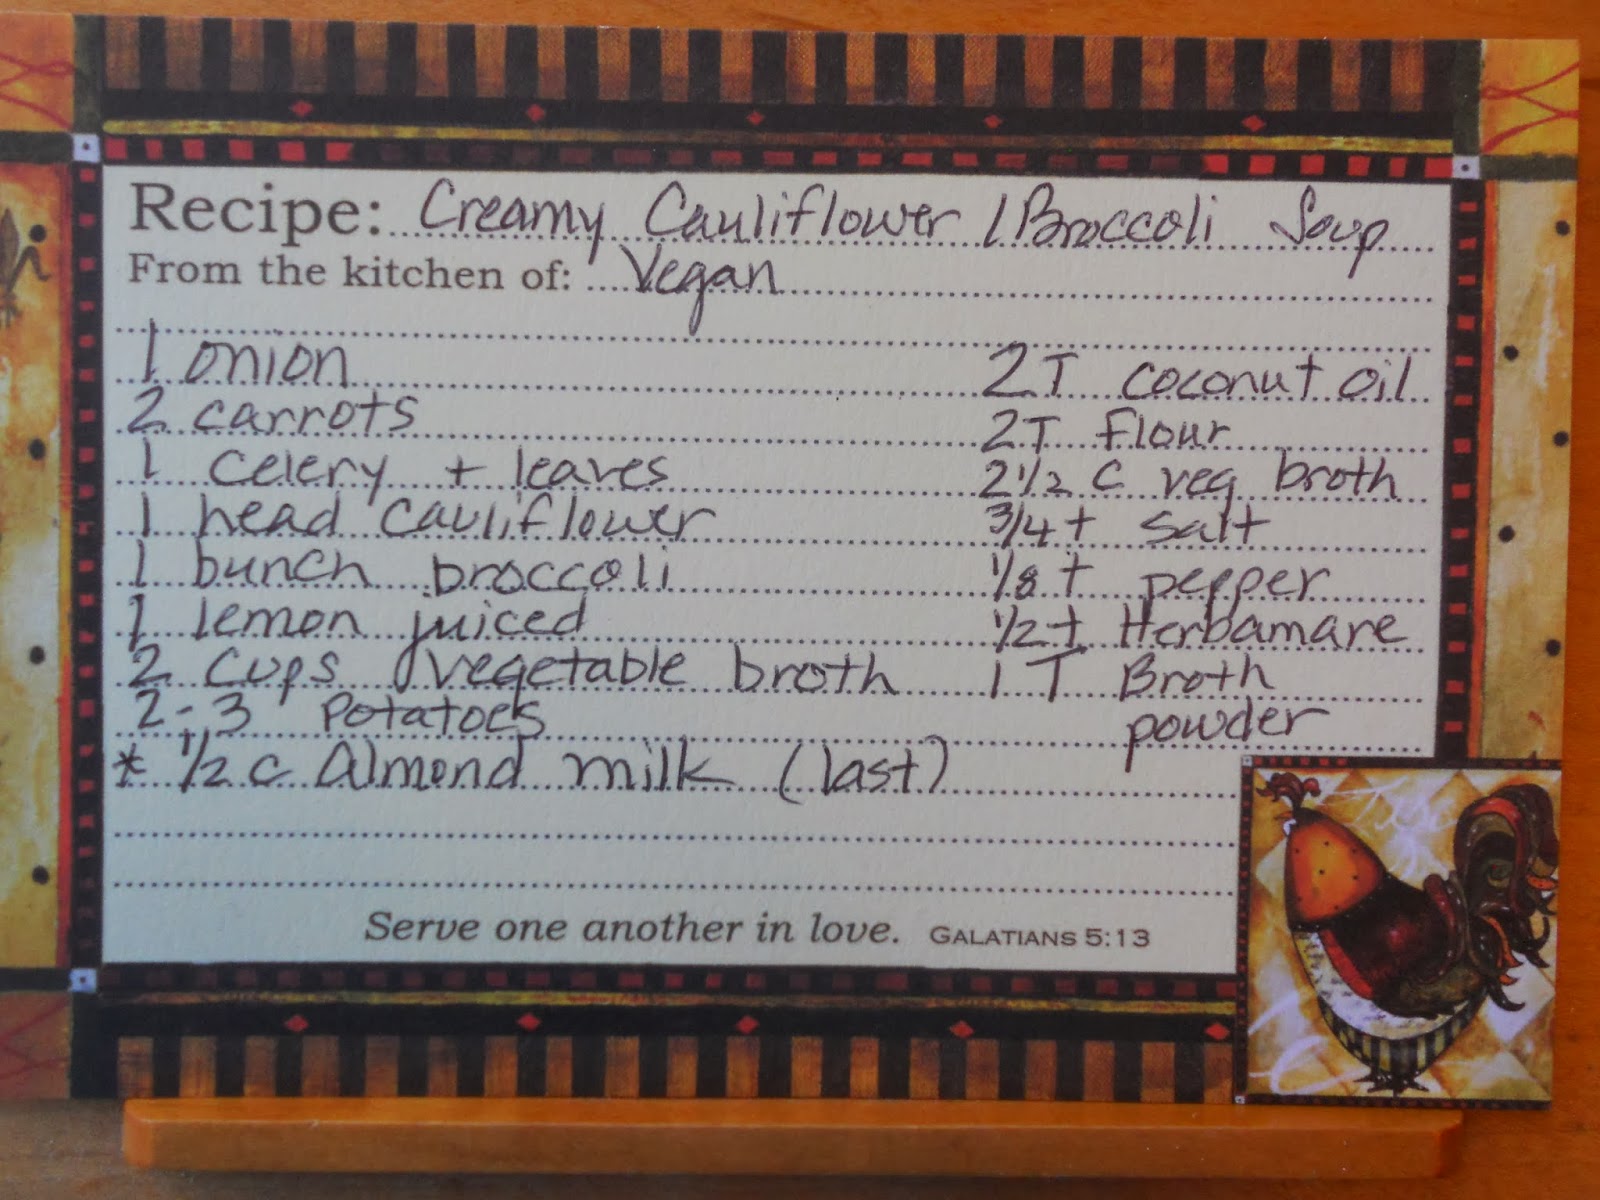 Recipe: Creamy Cauliflower / Broccoli Soup
From the kitchen of: Vegan
1 onion
2 carrots
1 celery + leaves
1 head cauliflower
1 bunch broccoli
1 lemon juiced
2 cups vegetable broth
2-3 Potatoes
* 1/2 c Almond milk (last)
2 T coconut oil
2 T flour
2 1/2 c veg broth
3/4 t salt
1/8 t pepper
1/2 t Herbamare
1 T Broth
powder
Serve one another in love. GALATIANS 5:13